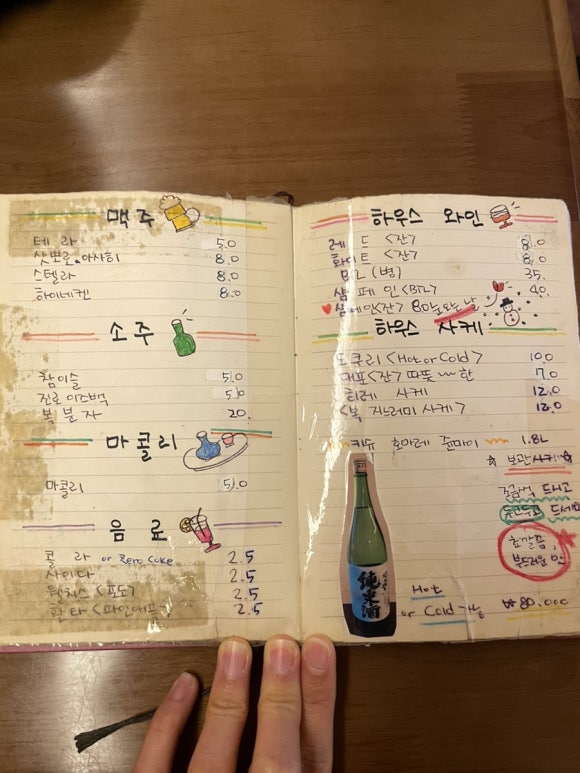 맥주
테라 5.0
삿뽀로.아사히 8.0
스텔라 8.0
하이네켄 8.0
소주
참이슬 5.0
진로이즈백 5.0
복분자 20.
마콜리
마콜리 5.0
음료
콜라 or Zero Coke 2.5
사이다 2.5
웰치스<포도> 2.5
환타<파인애플> 2.5
하우스 와인
레드 <잔> 8.0
화이트 <잔> 8.0
BTL (병) 35.
샴페인<BTL> 40.
♥ 샴페인<잔> 8.0 눈오는날
하우스 사케
도쿠리 <Hot or Cold> 10.0
대포<잔> 따뜻~한 7.0
히레 사케 12.0
<복 지느러미 사케> 12.0
키슈 호마레 쥰마이 1.8L
☆ 보관사케 ☆
조금씩 드시고
두고두고 드세요
純米酒
Hot
or Cold 가능
₩80,000